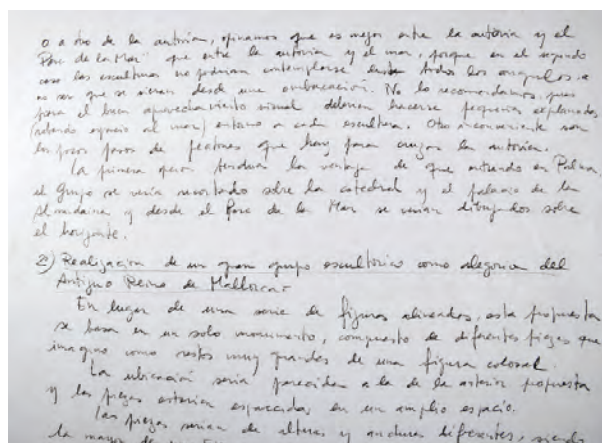 o a otro de la autovia, opinamos que es mejor entre la autovia y el
"Parc de la Mar" que entre la autovia y el mar, porque en el segundo
caso las esculturas no podrian contemplarse desde todos los angulos, a
no ser que se vieran desde una embarcación. No lo recomendamos, pues
para el buen aprovechamiento visual deberian hacerse pequeñas explanadas
(robando espacio al mar) entorno a cada escultura. Otro inconveniente son
los pocos pasos de peatones que hay para cruzar la autovia.
La primera opcion tendria la ventaja de que entrando en Palma,
el Grupo se veria recortado sobre la catedral y el palacio de la
Almudaina y desde el Parc de la Mar se verian dibujados sobre
el horizonte.
2) Realizacion de un gran grupo escultorico como alegoria del
Antiguo Reino de Mallorca-
En lugar de una serie de figuras alineadas, esta propuesta
se basa en un solo monumento, compuesto de diferentes piezas que
imagino como restos muy grandes de una figura colosal.
La ubicación seria parecida a la de la anterior propuesta
y las piezas estarian esparcidas en un amplio espacio.
Las piezas serian de alturas y anchura diferentes, siendo
la mayor de